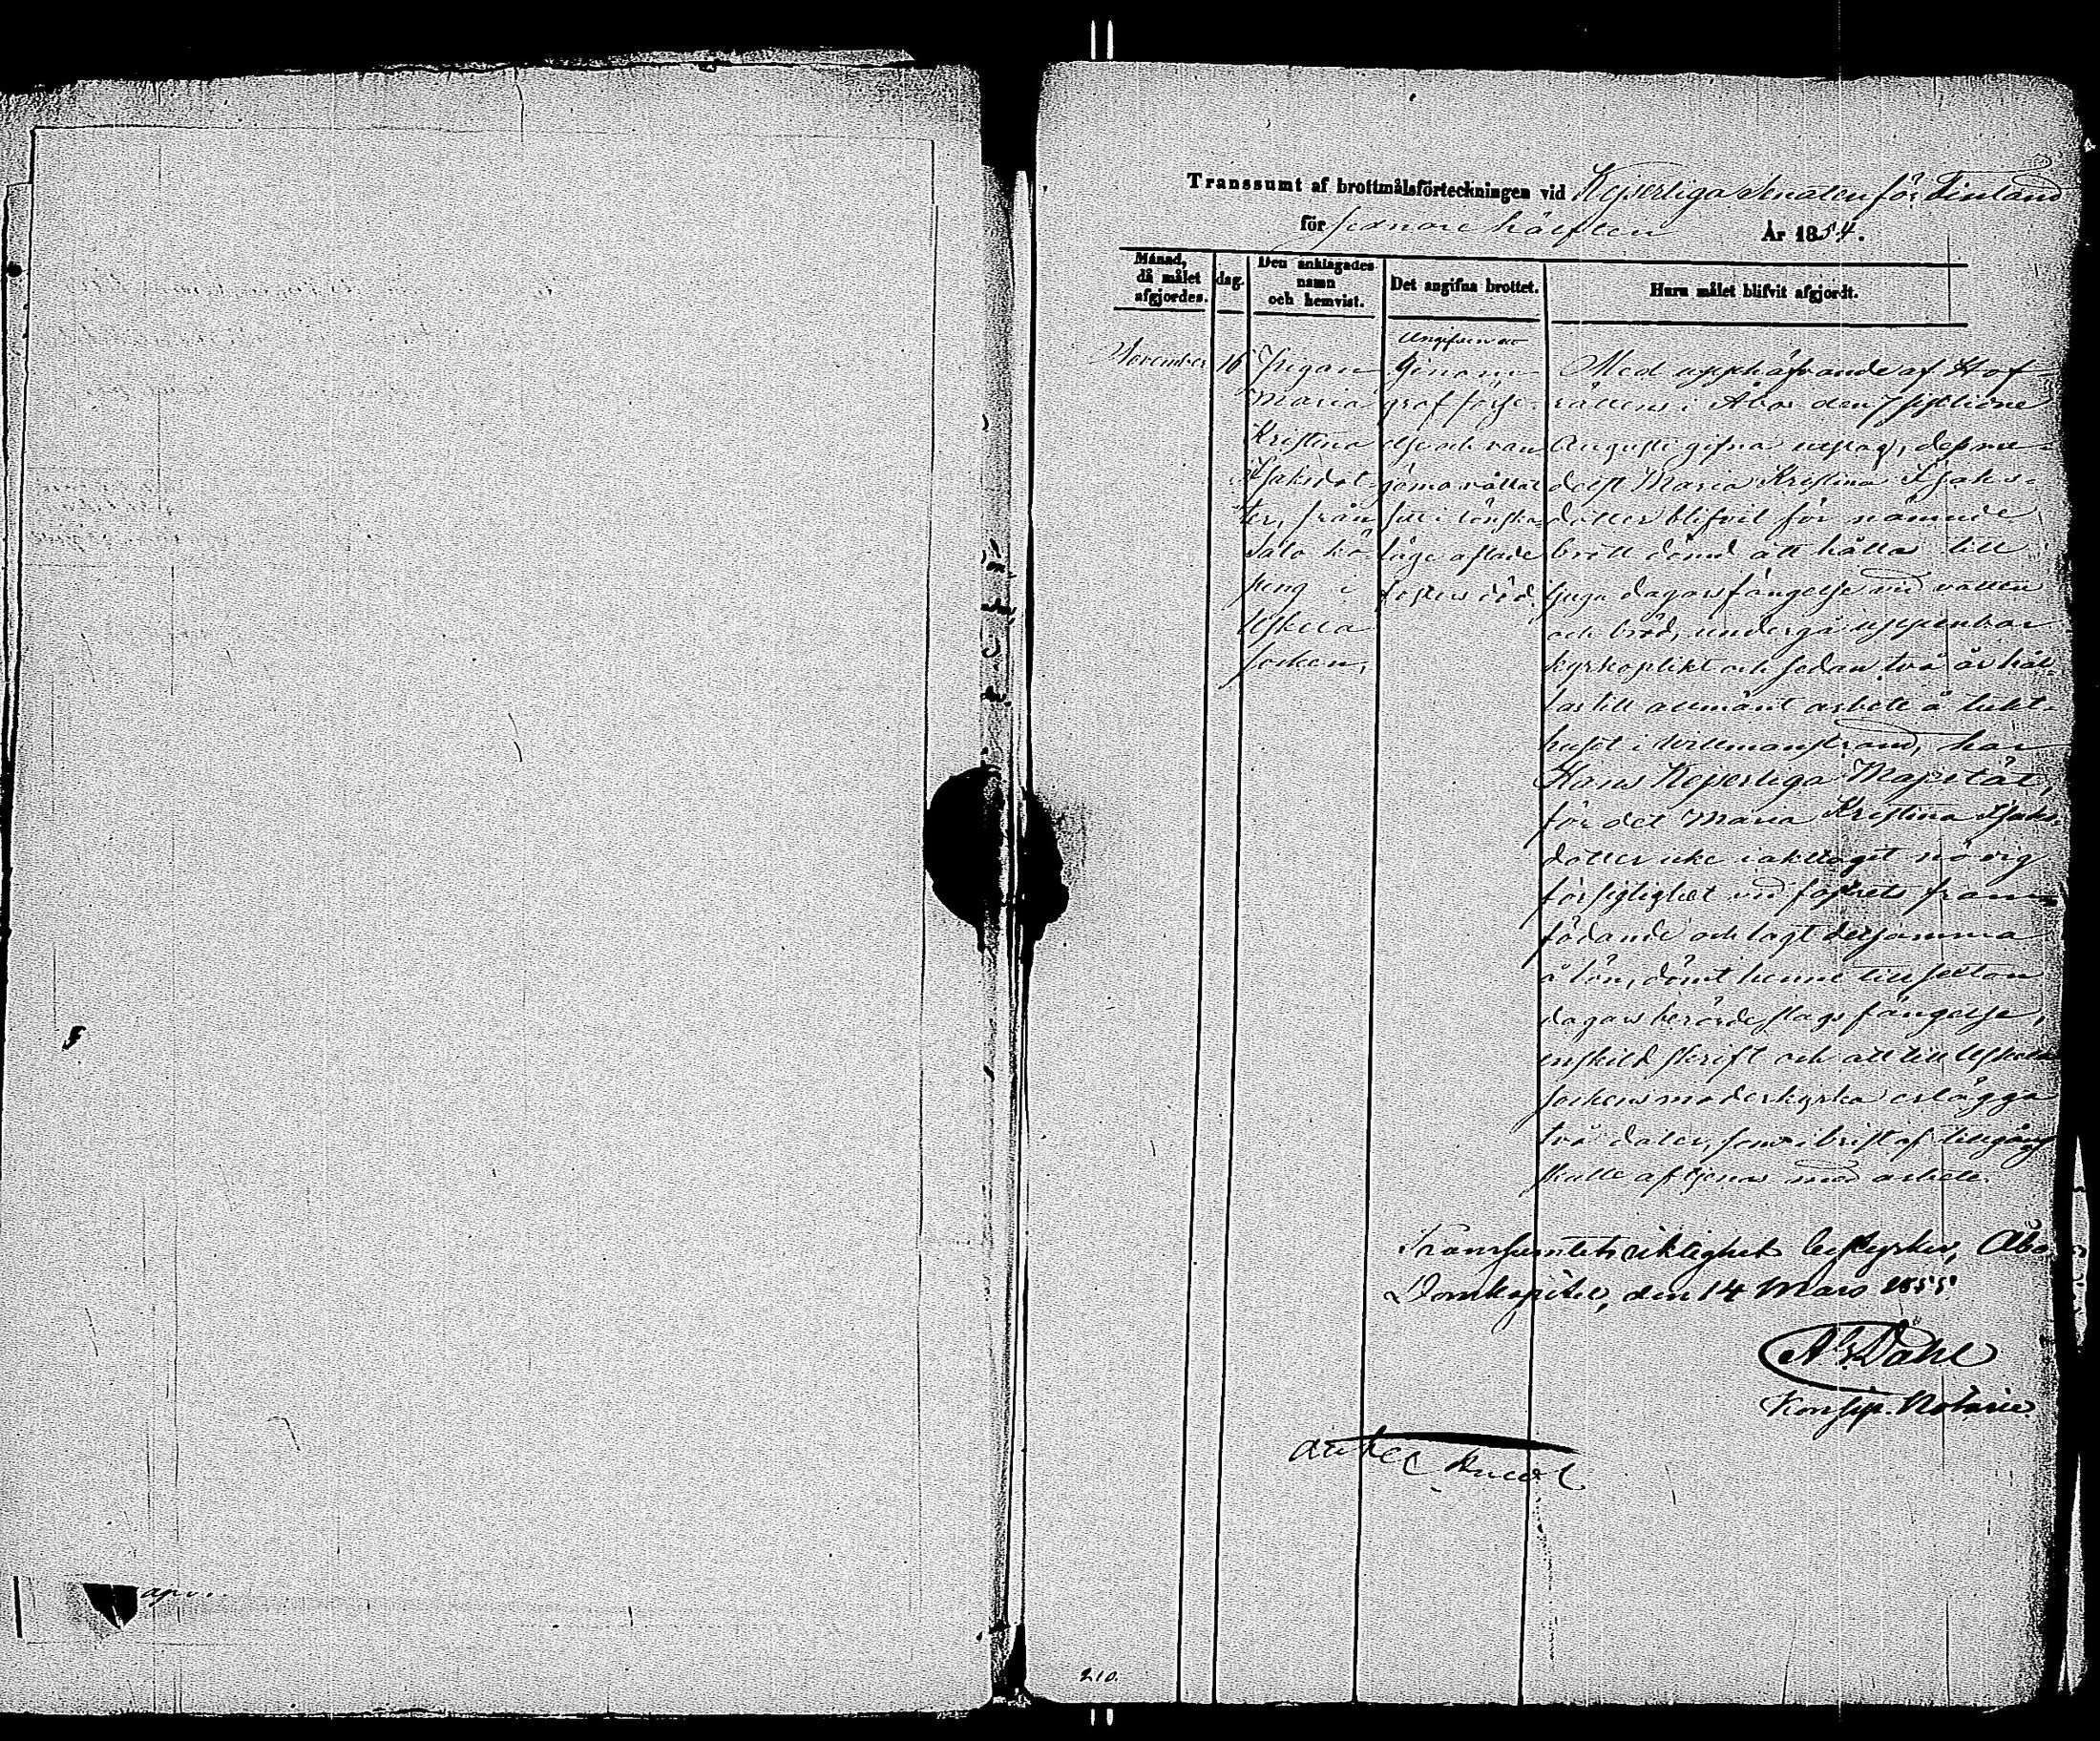 Transsumt af brottmålsförteckningen vid Kejserliga Senaten för Finland
för sednare hälften År 1854.
Månad, då målet afgjordes.
dag.
Den anklagades namn och hemvist.
Det angifna brottet.
Huru målet blifvit afgjordt.
November
16
Pigan
Maria
Kristina
Isaksdot-
ter, från
Salo kö-
ping i
Uskela
socken,
Angifven att
genom
graf förse-
else och van-
göma vållat
sitt i lönska-
läge aflade
fosters död.
Med upphäfvande af Hof-
rättens i Åbo den sjette
Augusti gifna utslag, derme-
delst Maria Kristina Isaks-
dotter blifvit för nämnde
brott dömd att hållas till
tjugu dagars fängelse vid vatten
och bröd, undergå uppenbar
kyrkoplikt och sedan två år hål-
las till allmänt arbete å tukt-
huset i Willmanstrand, har
Hans Kejserliga Majestät,
för det Maria Kristina Isaks-
dotter icke iakttagit nödig
försigtighet vid fostrets fram-
födande och lagt detsamma
å lön, dömt henne till sexton
dagars berörde slags fängelse,
enskild skrift och att till Uskela
sockens moderkyrka erlägga
två daler, som i brist af tillgång
skulle aftjenas med arbete.
Transsumtets riktighet bestyrker, Åbo
Domkapitel, den 14 Mars 1855.
A. Dahl
Konsist. Notarie
210.